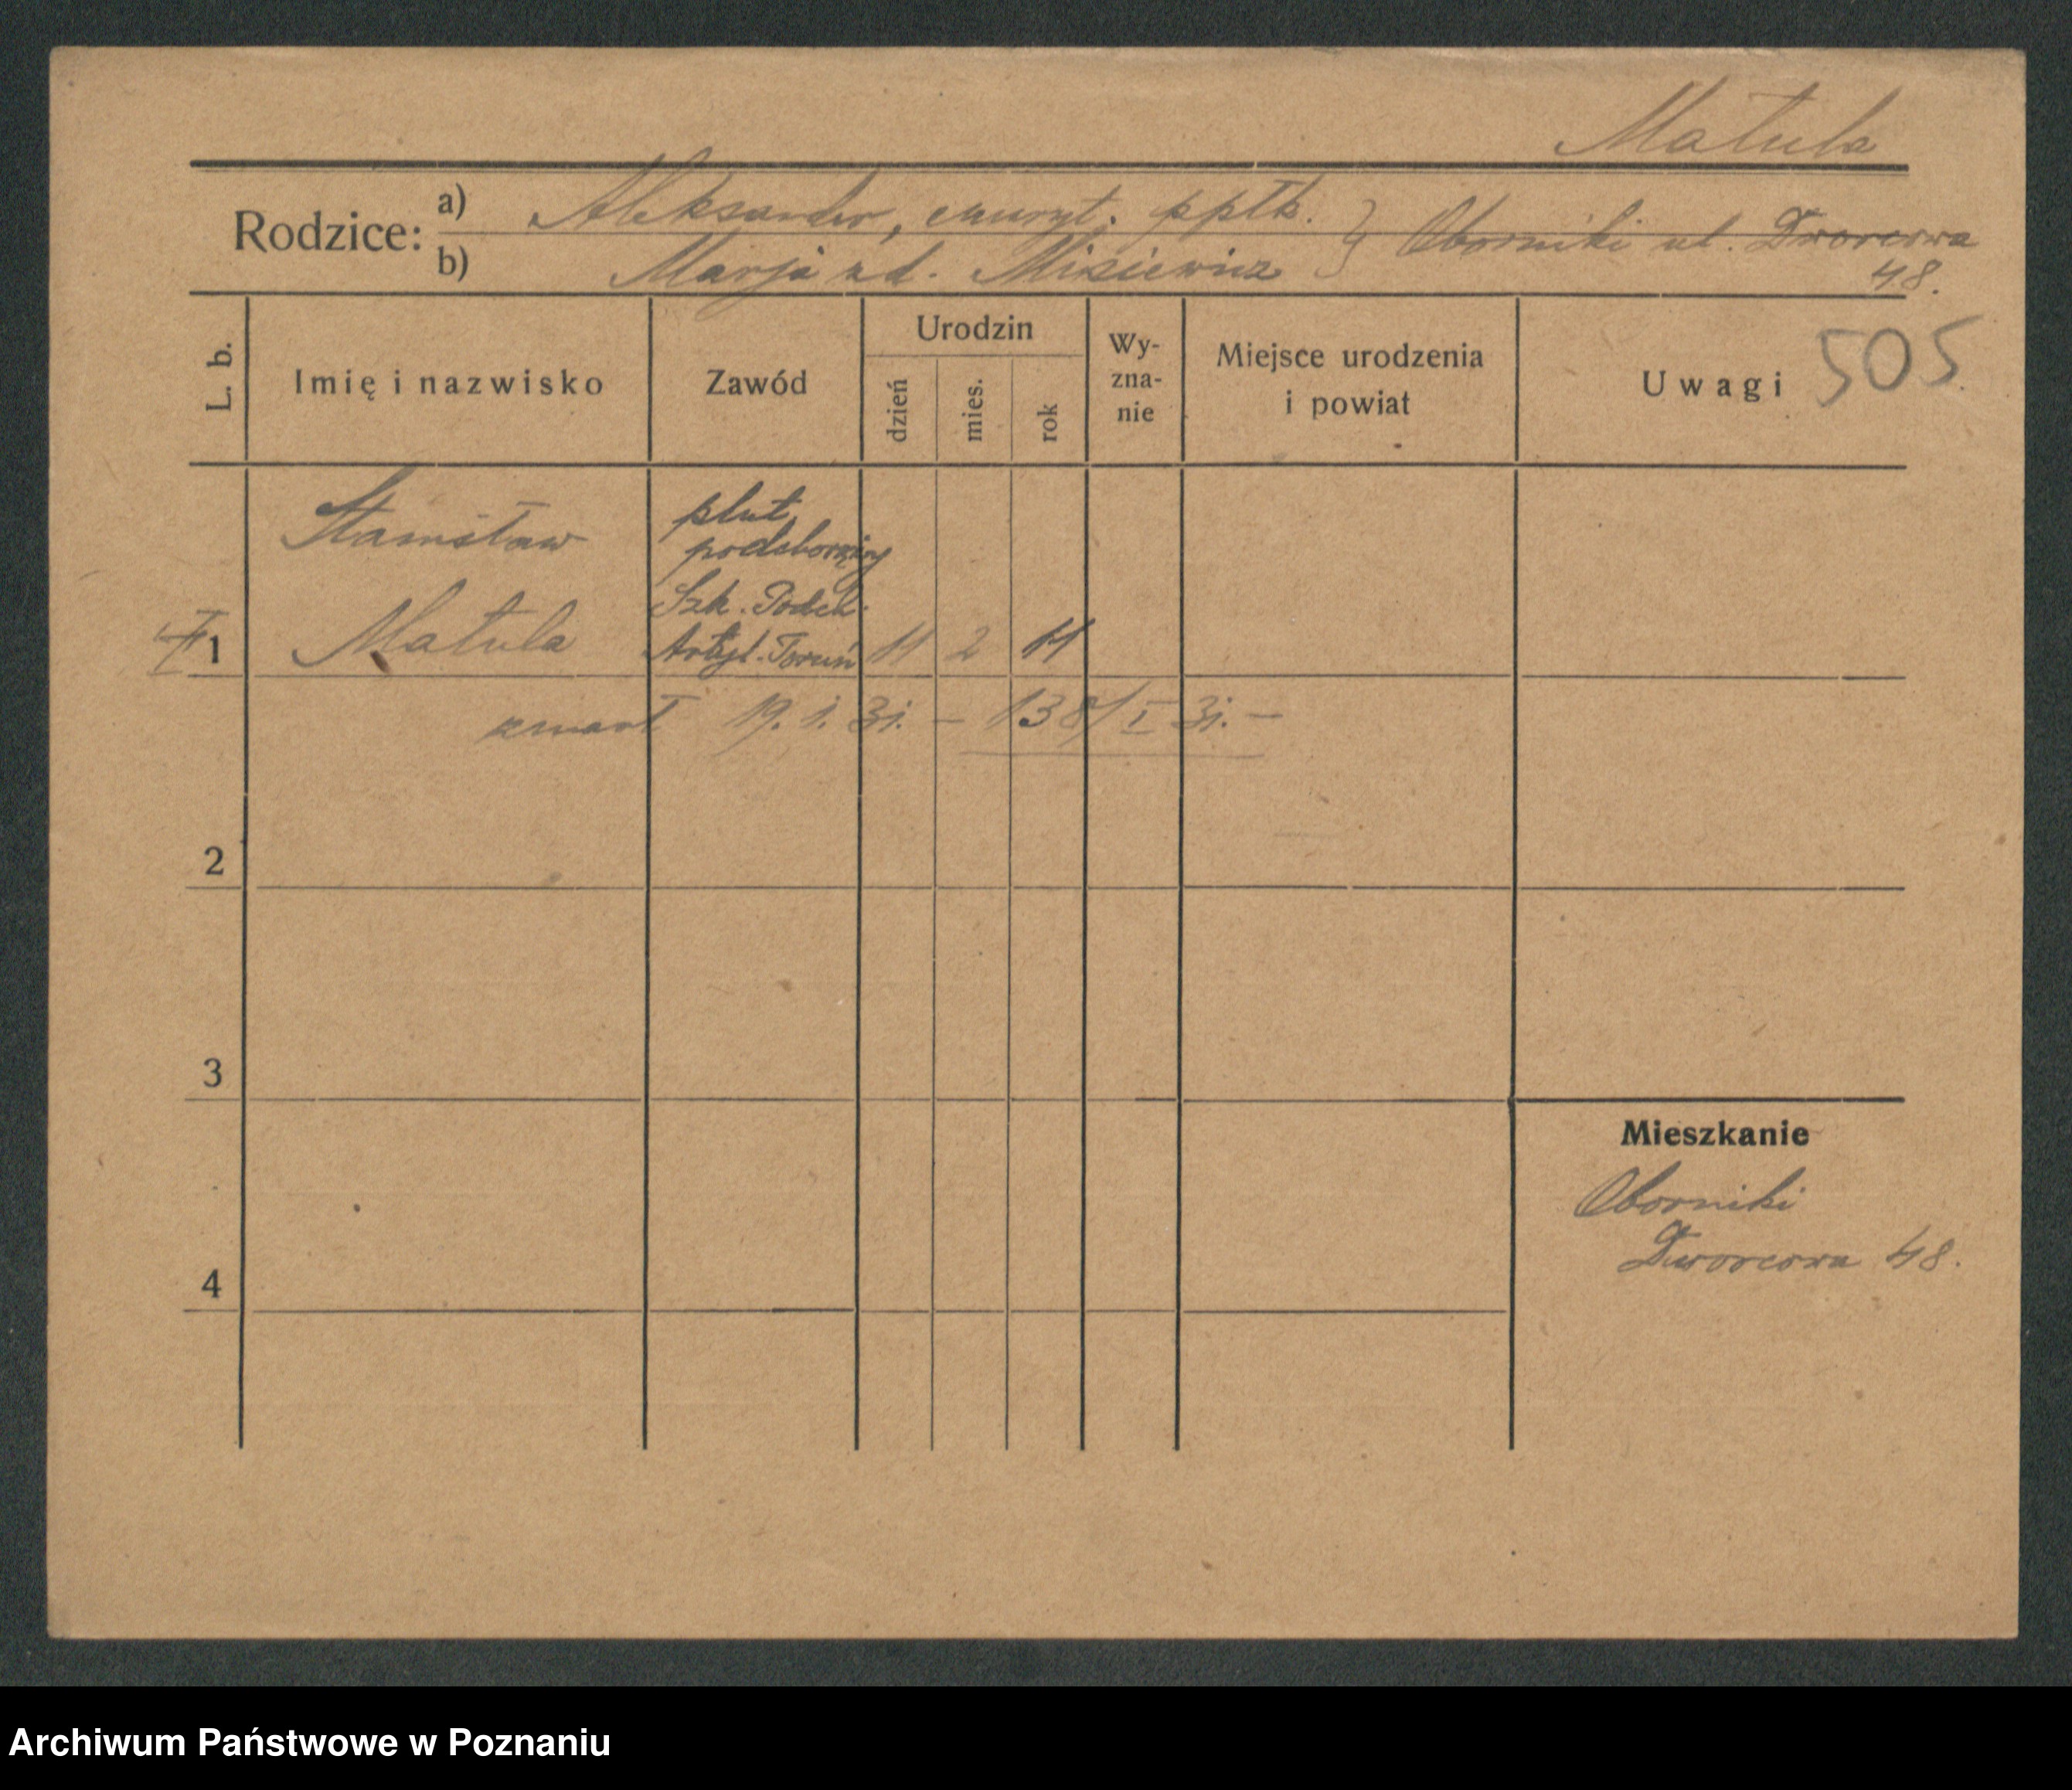 Matula
Rodzice:
a) Aleksander, emeryt. ppłk. } Oborniki ul. Dworcowa
b) Marja zd. Misiewicz 48.
L. b. Imię i nazwisko Zawód Urodzin dzień mies. rok Wy-zna-nie Miejsce urodzenia i powiat Uwagi 505
Stanisław plut.
podchorąży
Szk. Podch.
1 Matula Artyl. Toruń 11 2 11
zmarł 19. 1. 31. – 138/I 31. –
2
3
Mieszkanie
Oborniki
Dworcowa 48.
4
Archiwum Państwowe w Poznaniu